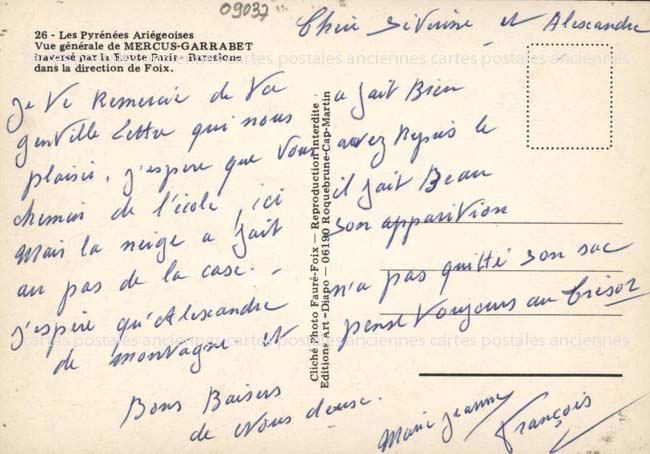 09037
26 - Les Pyrénées Ariégeoises
Vue générale de MERCUS-GARRABET
traversé par la Route Paris - Barcelone
dans la direction de Foix.
cartes postales anciennes cartes postales anciennes cartes postales anciennes
Cliché Photo Fauré-Foix — Reproduction Interdite
Editions Art - Diapo — 06190 Roquebrune-Cap-Martin
Chère Séverine et Alexandre
Je Te Remercie de Ta
gentille lettre qui nous a fait Bien
plaisir. j'espère que vous avez Repris le
chemin de l'école, ici il fait Beau
Mais la neige a fait son apparition
au pas de la case. -
j'espère qu'Alexandre n'a pas quitté son sac
de montagne et pense Toujours au trésor
Bons Baisers
de Nous deux.
Marie Jeanne
François
cartes postales anciennes cartes postales anciennes cartes postales anciennes